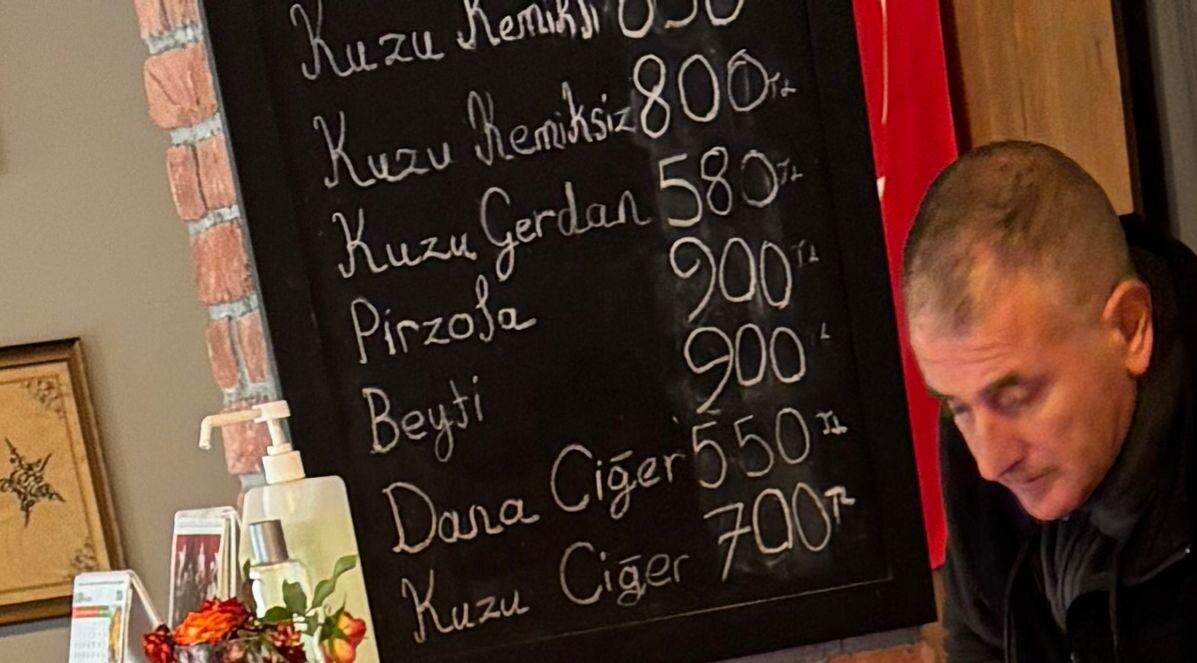 Kuzu Kemikli 650
Kuzu Kemiksiz 800 TL
Kuzu Gerdan 580 TL
Pirzola 900 TL
Beyti 900 L
Dana Ciğer 550 TL
Kuzu Ciğer 700 TL